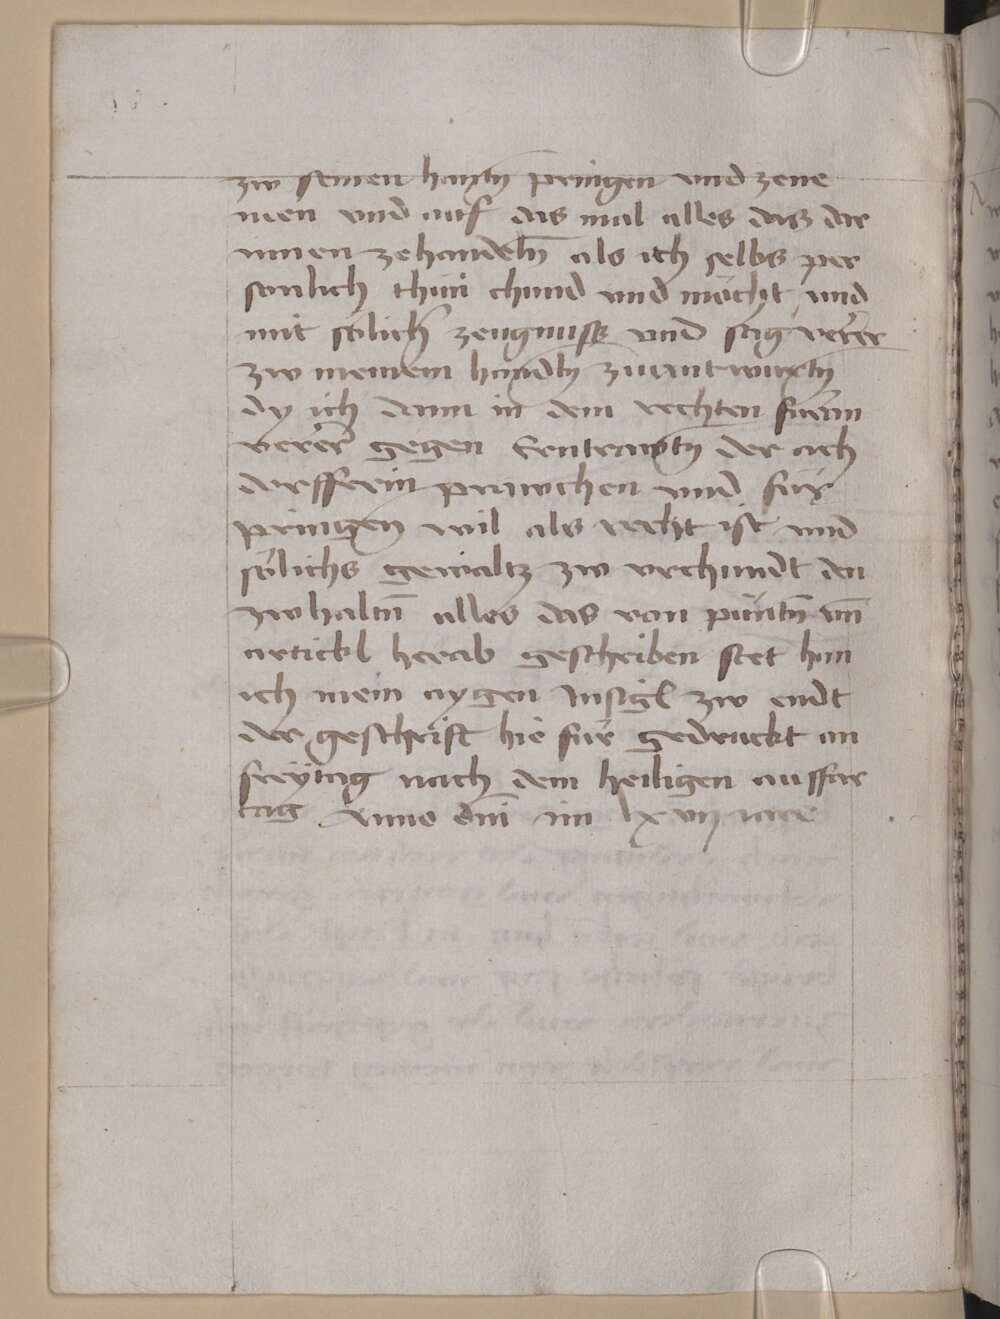 zw seinen hantn̄ pringen vnd zene
men vnd auf das mal alles das dar
innen zehandeln̄ als ich selbs per
sonlich thun chund vnd möcht vnd
mit sölich zeugnuss vnd sag verrer
zw meinem handn̄ zuantwurtn̄
dy ich dann in dem rechten
verrer gegen der ich
prauchen vnd für
pringen wil als recht ist vnd
sölichs gewaltz zw vrchundt den
zwhaltn̄ alles das von puntn̄ vn̄
artickl herab geschriben stet han
ich mein aygen Insigl zw endt
der geschrift hie für gedruckt an
freytag nach dem heiligen auffar
tag Anno dn̄i im lxvij iare